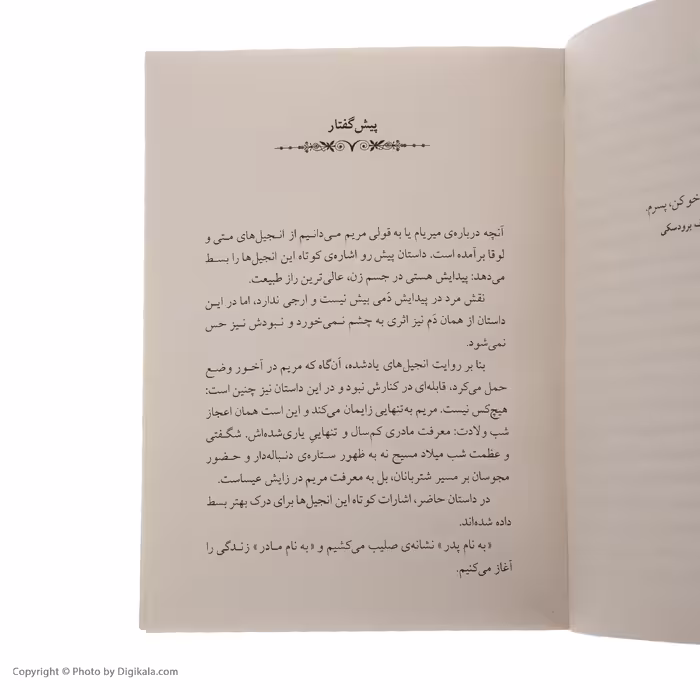 پیش‌گفتار
آنچه درباره‌ی میریام یا به قولی مریم می‌دانیم از انجیل‌های متی و
لوقا برآمده است. داستان پیش رو اشاره‌ی کوتاه این انجیل‌ها را بسط
می‌دهد: پیدایش هستی در جسم زن، عالی‌ترین راز طبیعت.
نقش مرد در پیدایش دَمی بیش نیست و ارجی ندارد، اما در این
داستان از همان دَم نیز اثری به چشم نمی‌خورد و نبودش نیز حس
نمی‌شود.
بنا بر روایت انجیل‌های یادشده، آن‌گاه که مریم در آخور وضع
حمل می‌کرد، قابله‌ای در کنارش نبود و در این داستان نیز چنین است:
هیچ‌کس نیست. مریم به‌تنهایی زایمان می‌کند و این است همان اعجاز
شب ولادت: معرفت مادری کم‌سال و تنهاییِ یاری‌شده‌اش. شگفتی
و عظمت شب میلاد مسیح نه به ظهور ستاره‌ی دنباله‌دار و حضور
مجوسان بر مسیر شتربانان، بل به معرفت مریم در زایش عیساست.
در داستان حاضر، اشارات کوتاه این انجیل‌ها برای درک بهتر بسط
داده شده‌اند.
«به نام پدر» نشانه‌ی صلیب می‌کشیم و «به نام مادر» زندگی را
آغاز می‌کنیم.
خو کن، پسرم.
برودسکی
Copyright © Photo by Digikala.com